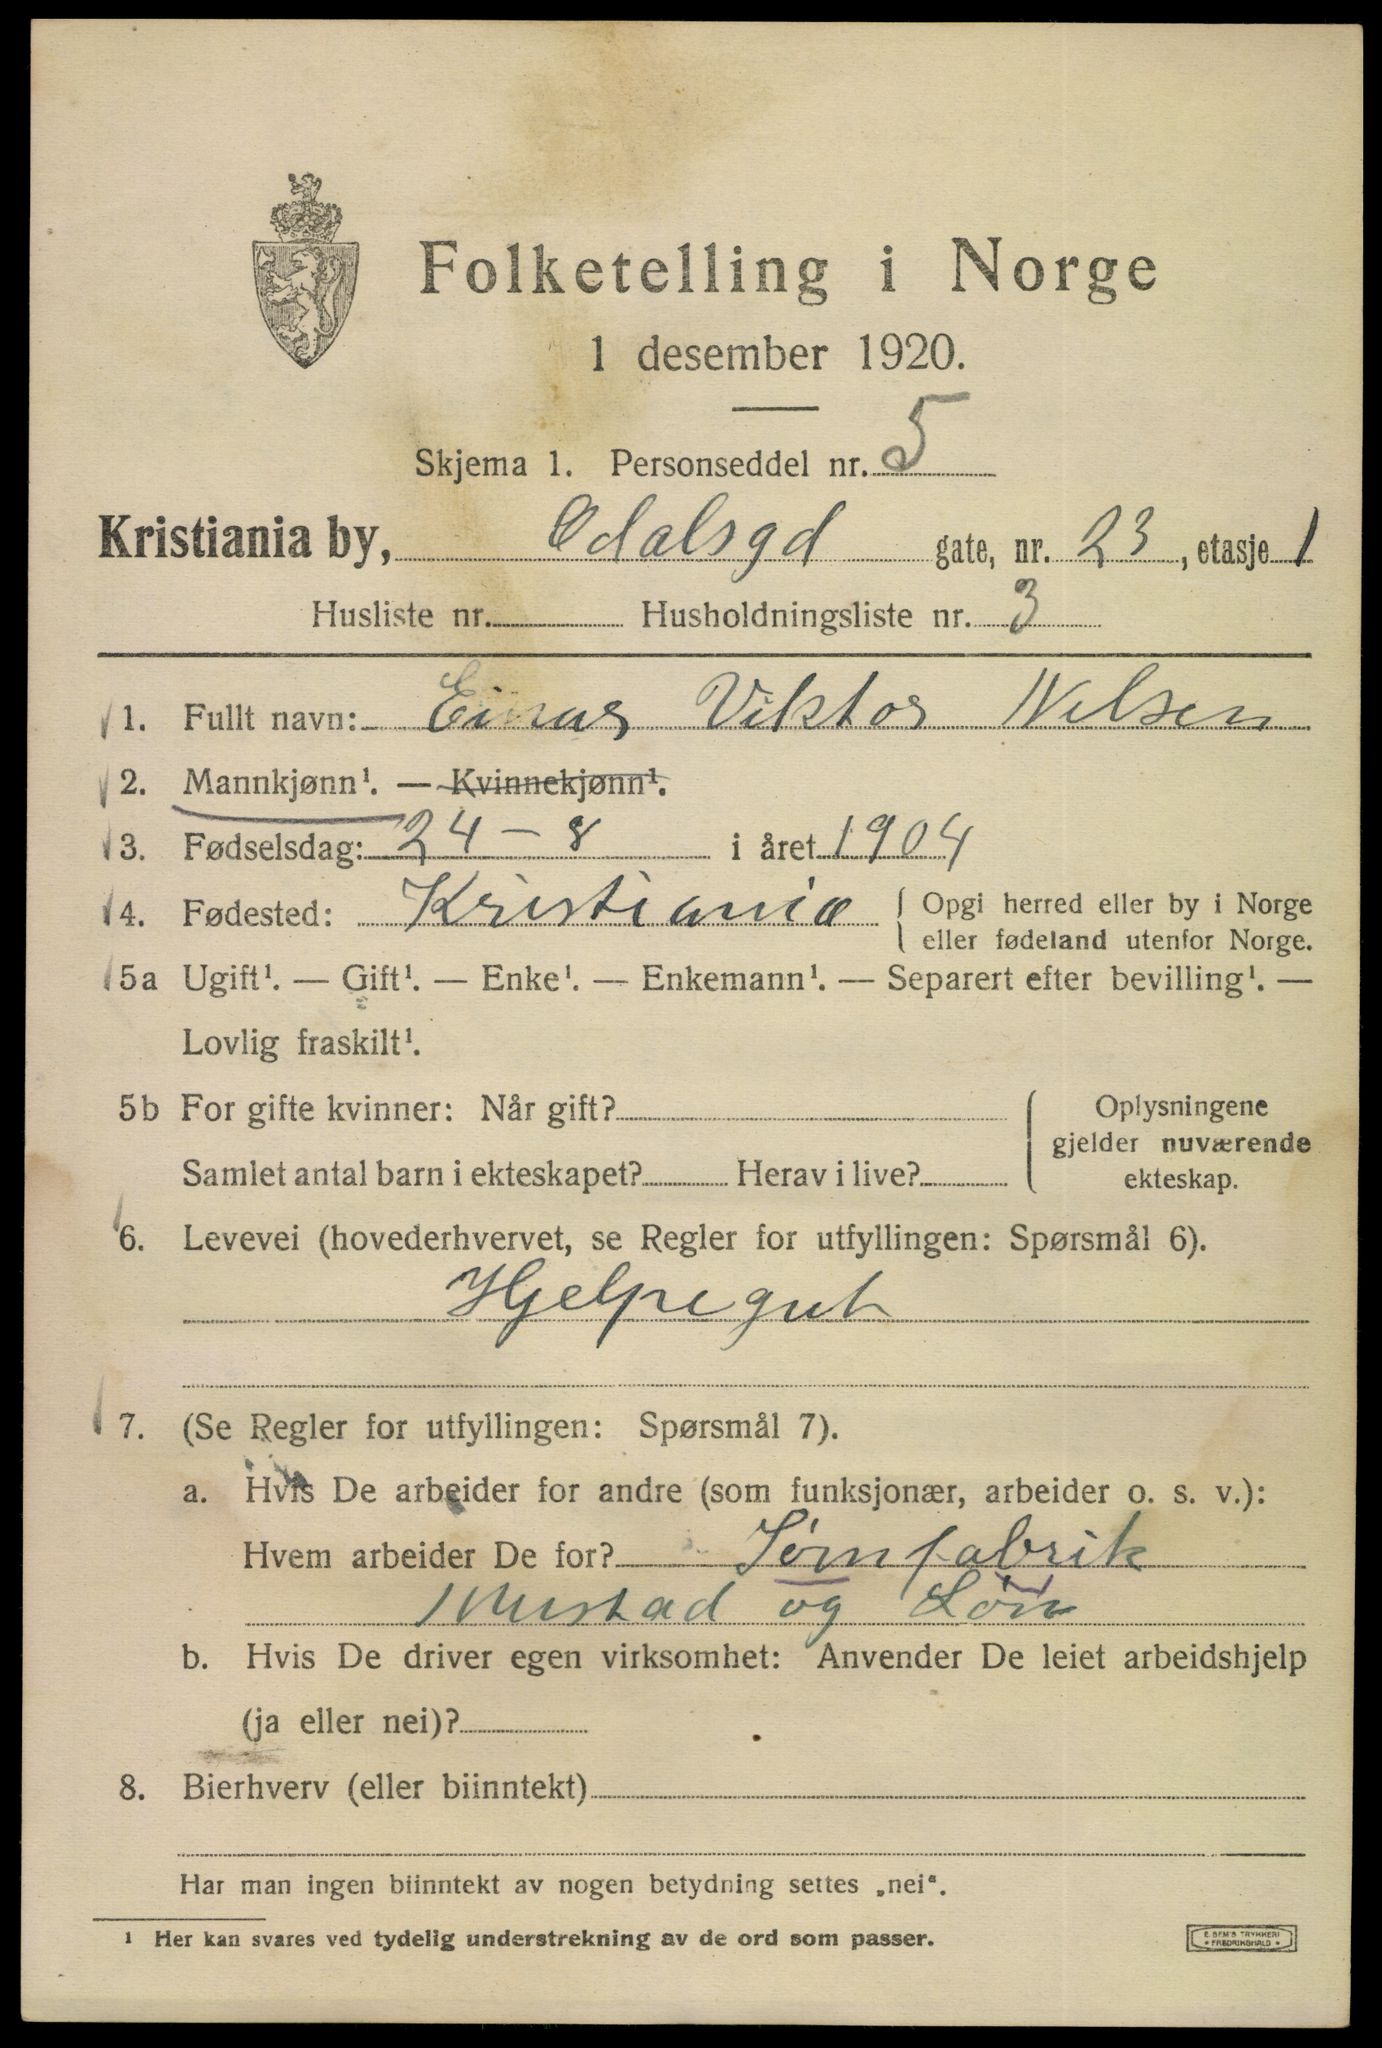 Folketelling i Norge
1 desember 1920.
Skjema 1. Personseddel nr. 5
Kristiania by, Odalsgd gate, nr. 23, etasje 1
Husliste nr. Husholdningsliste nr. 3
1. Fullt navn: Einar Viktor Nilsen
2. Mannkjønn¹. — Kvinnekjønn¹.
3. Fødselsdag: 24 – 8 i året 1904
4. Fødested: Kristiania { Opgi herred eller by i Norge
eller fødeland utenfor Norge.
5a Ugift¹. — Gift¹. — Enke¹. — Enkemann¹. — Separert efter bevilling¹. —
Lovlig fraskilt¹.
5b For gifte kvinner: Når gift?
Samlet antal barn i ekteskapet? Herav i live?
{ Oplysningene
gjelder nuværende
ekteskap.
6. Levevei (hovederhvervet, se Regler for utfyllingen: Spørsmål 6).
Hjelpegut
7. (Se Regler for utfyllingen: Spørsmål 7).
a. Hvis De arbeider for andre (som funksjonær, arbeider o. s. v.):
Hvem arbeider De for? Sømfabrik
Mustad og Søn
b. Hvis De driver egen virksomhet: Anvender De leiet arbeidshjelp
(ja eller nei)?
8. Bierhverv (eller biinntekt)
Har man ingen biinntekt av nogen betydning settes „nei“.
¹ Her kan svares ved tydelig understrekning av de ord som passer.
E. SEM'S TRYKKERI
* FREDRIKSHALD *